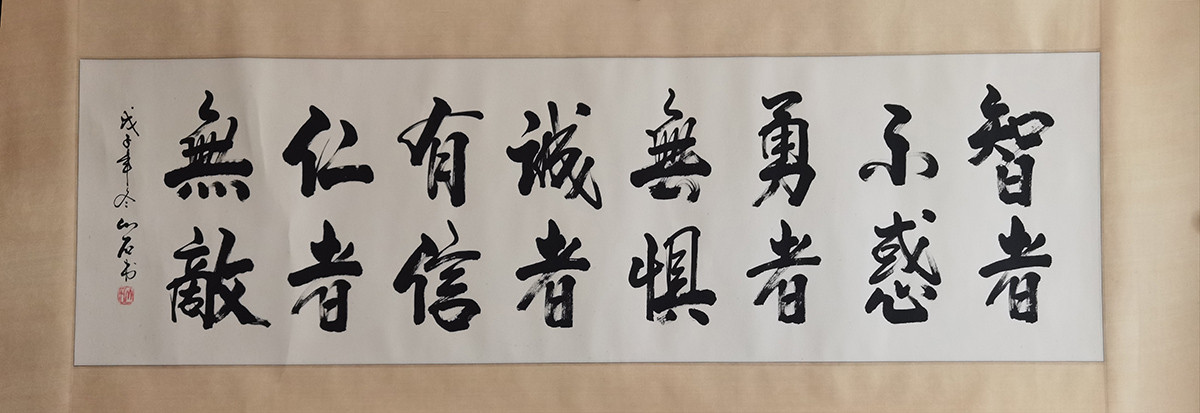 智者
不惑
勇者
無惧
誠者
有信
仁者
無敵
戊子年冬山石书